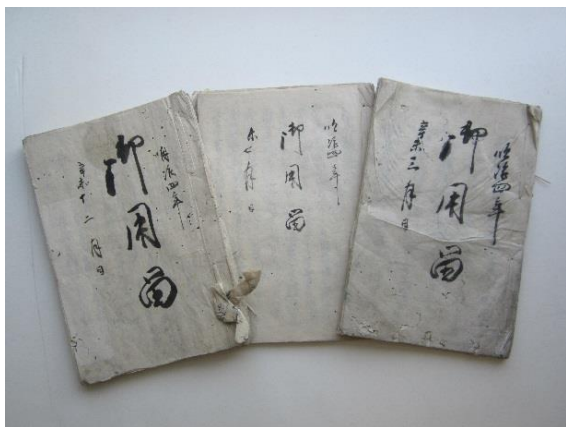 明治四年
御用留
辛未三月日
明治四年
御用留
未七月日
明治四年
御用留
辛未十二月日